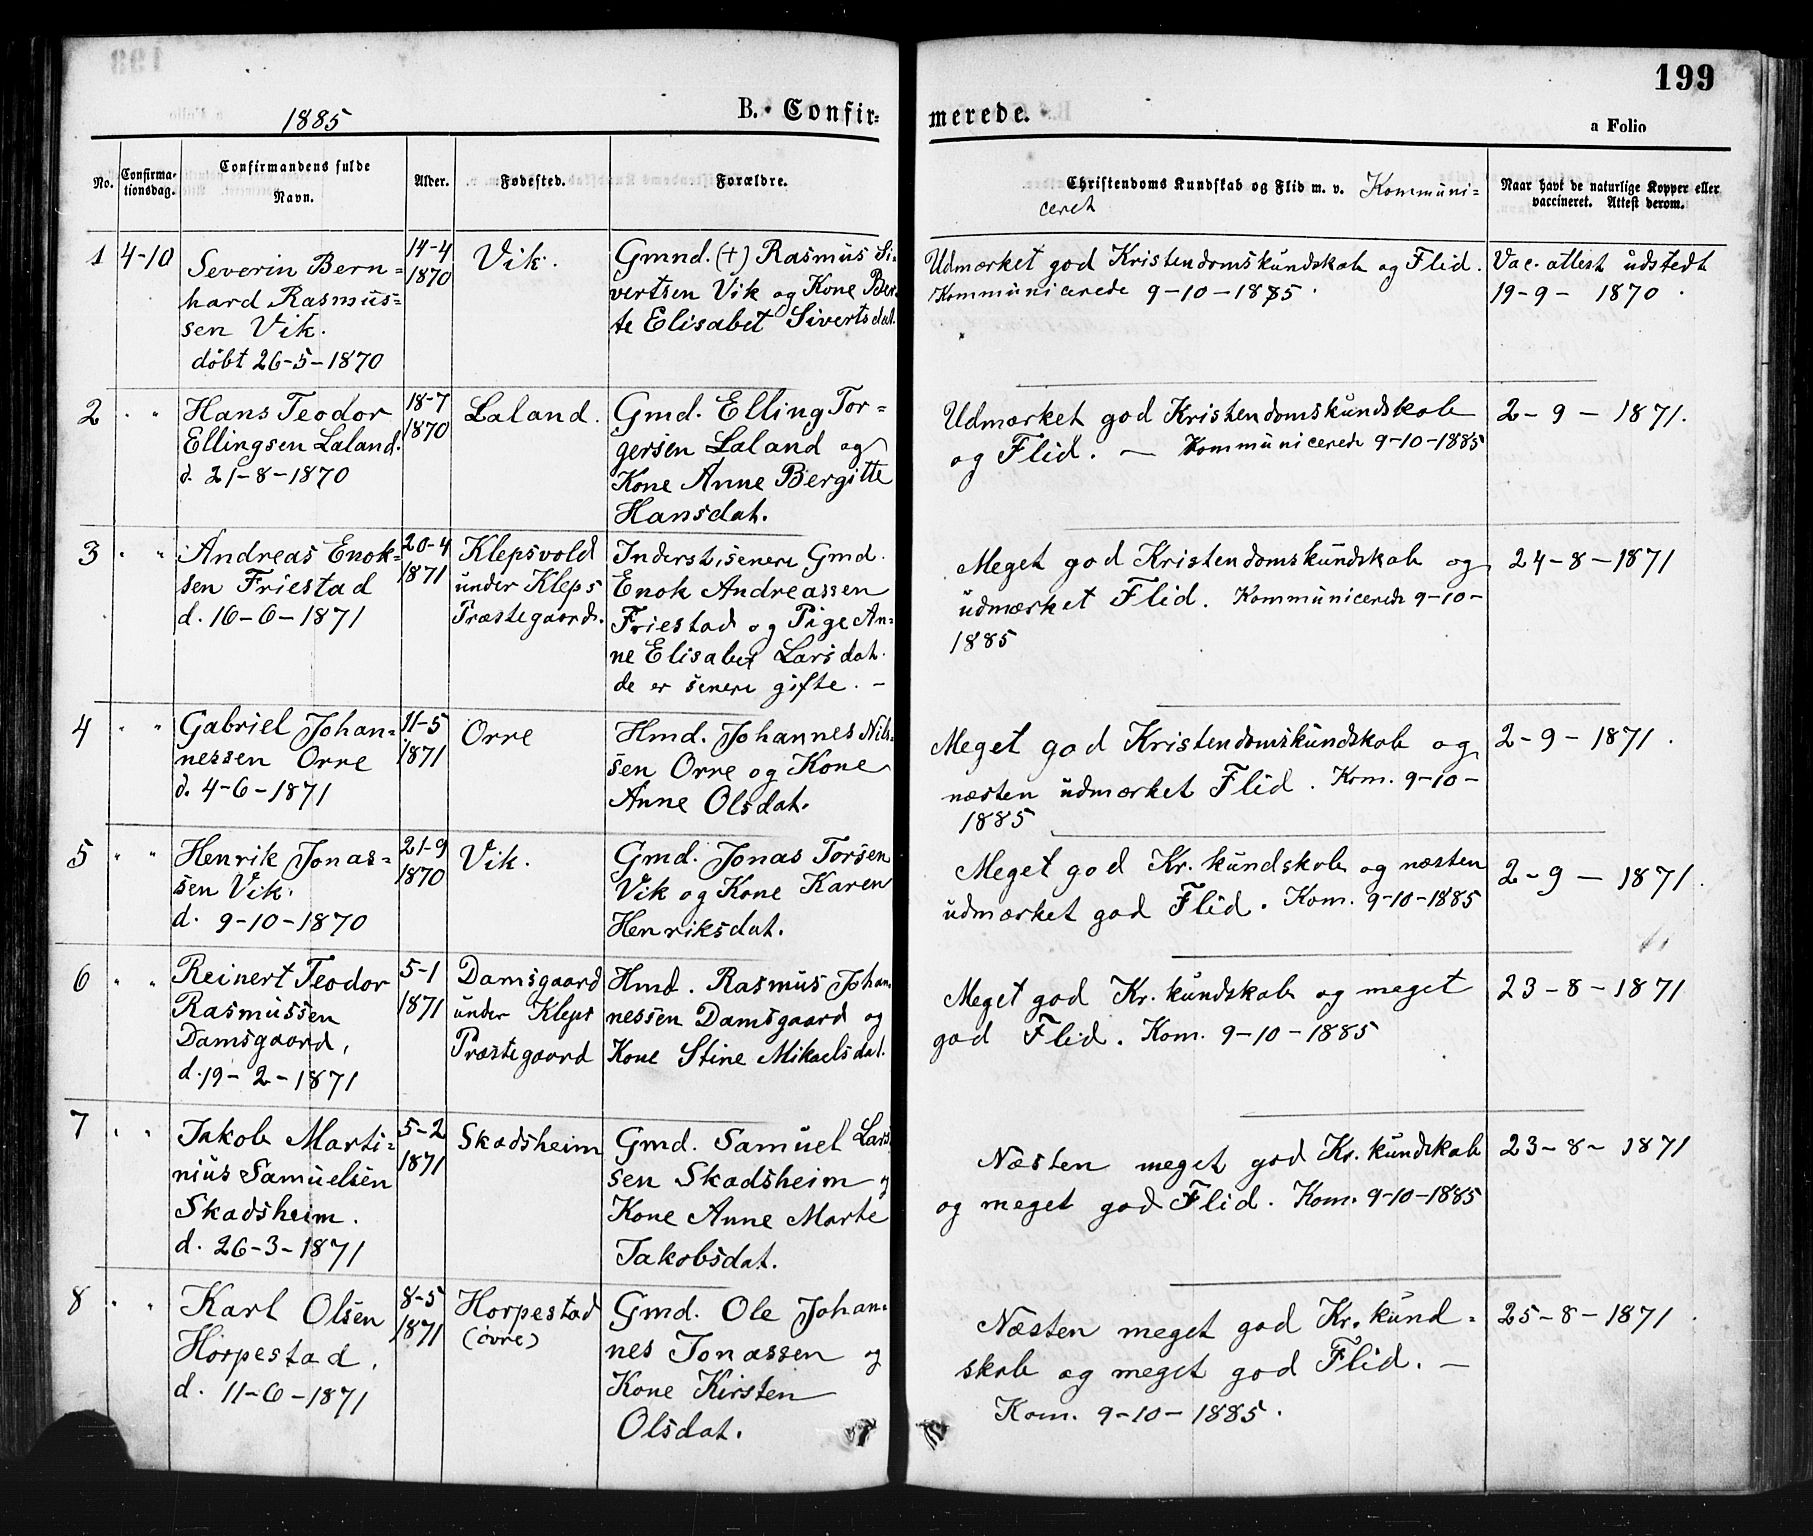 199
1885
B. Confir-
merede.
a Folio
No.
Confirma-
tionsdag.
Confirmandens fulde
Navn.
Alder.
Fødested.
Forældre.
Christendoms Kundskab og Flid m. v. Kommuni-
ceret
Naar havt de naturlige Kopper eller
vaccineret. Attest derom.
1
4-10
Severin Bern-
hard Rasmus-
sen Vik.
døbt 26-5-1870
14-4
1870
Vik.
Gmnd. (+) Rasmus Si-
vertsen Vik og Kone Ber-
te Elisabet Sivertsdat.
Udmærket god Kristendomskundskab og Flid.
Kommunicerede 9-10-1885.
Vac. attest udstedt
19-9- 1870.
2
" "
Hans Teodor
Ellingsen Laland.
d. 21-8-1870
18-7
1870
Laland.
Gmd. Elling Tor-
gersen Laland og
Kone Anne Bergitte
Hansdat.
Udmærket god Kristendomskundskab
og Flid. — Kommunicerede 9-10-1885
2-9-1871.
3
" "
Andreas Enok-
sen Friestad
d. 16-6-1871
20-4
1871
Klepsvold
under Kleps
Præstegaard.
Inderst, senere Gmd.
Enok Andreassen
Friestad og Pige An-
ne Elisabet Larsdat.
de er senere gifte. -
Meget god Kristendomskundskab og
udmærket Flid. Kommunicerede 9-10-
1885
24-8-1871
4
" "
Gabriel Johan-
nessen Orre
d. 4-6-1871
11-5
1871
Orre
Hmd. Johannes Nils-
sen Orre og Kone
Anne Olsdat.
Meget god Kristendomskundskab og
næsten udmærket Flid. Kom. 9-10-
1885
2-9-1871.
5
" "
Henrik Jonas-
sen Vik.
d. 9-10-1870
21-9
1870
Vik.
Gmd. Jonas Torsen
Vik og Kone Karen
Henriksdat.
Meget god Kr. kundskab og næsten
udmærket god Flid. Kom. 9-10-1885
2-9-1871.
6
" "
Reinert Teodor
Rasmussen
Damsgaard,
d. 19-2-1871
5-1
1871
Damsgaard
under Kleps
Præstegaard
Hmd. Rasmus Johan-
nessen Damsgaard og
Kone Stine Mikaelsdat.
Meget god Kr. kundskab og meget
god Flid. Kom. 9-10-1885
23-8-1871
7
" "
Jakob Marti-
nius Samuelsen
Skadsheim.
d. 26-3-1871
5-2
1871
Skadsheim
Gmd. Samuel Lars-
sen Skadsheim og
Kone Anne Marte
Jakobsdat.
Næsten meget god Kr. kundskab
og meget god Flid. Kom. 9-10-1885
23-8-1871
8
" "
Karl Olsen
Horpestad.
d. 11-6-1871
8-5
1871
Horpestad
(øvre)
Gmd. Ole Johan-
nes Jonassen og
Kone Kirsten
Olsdat.
Næsten meget god Kr. kund-
skab og meget god Flid. —
Kom. 9-10-1885.
25-8-1871